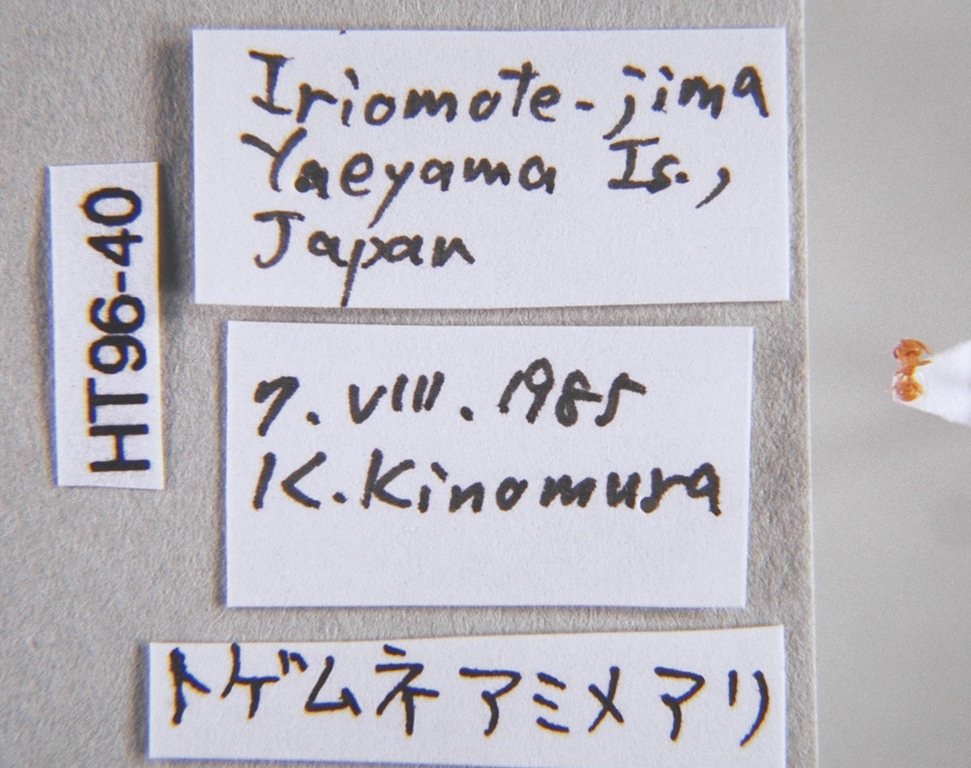 HT96-40
Iriomote-jima
Yaeyama Is.,
Japan
7.VIII.1985
K.Kinomura
トゲムネアミメアリ